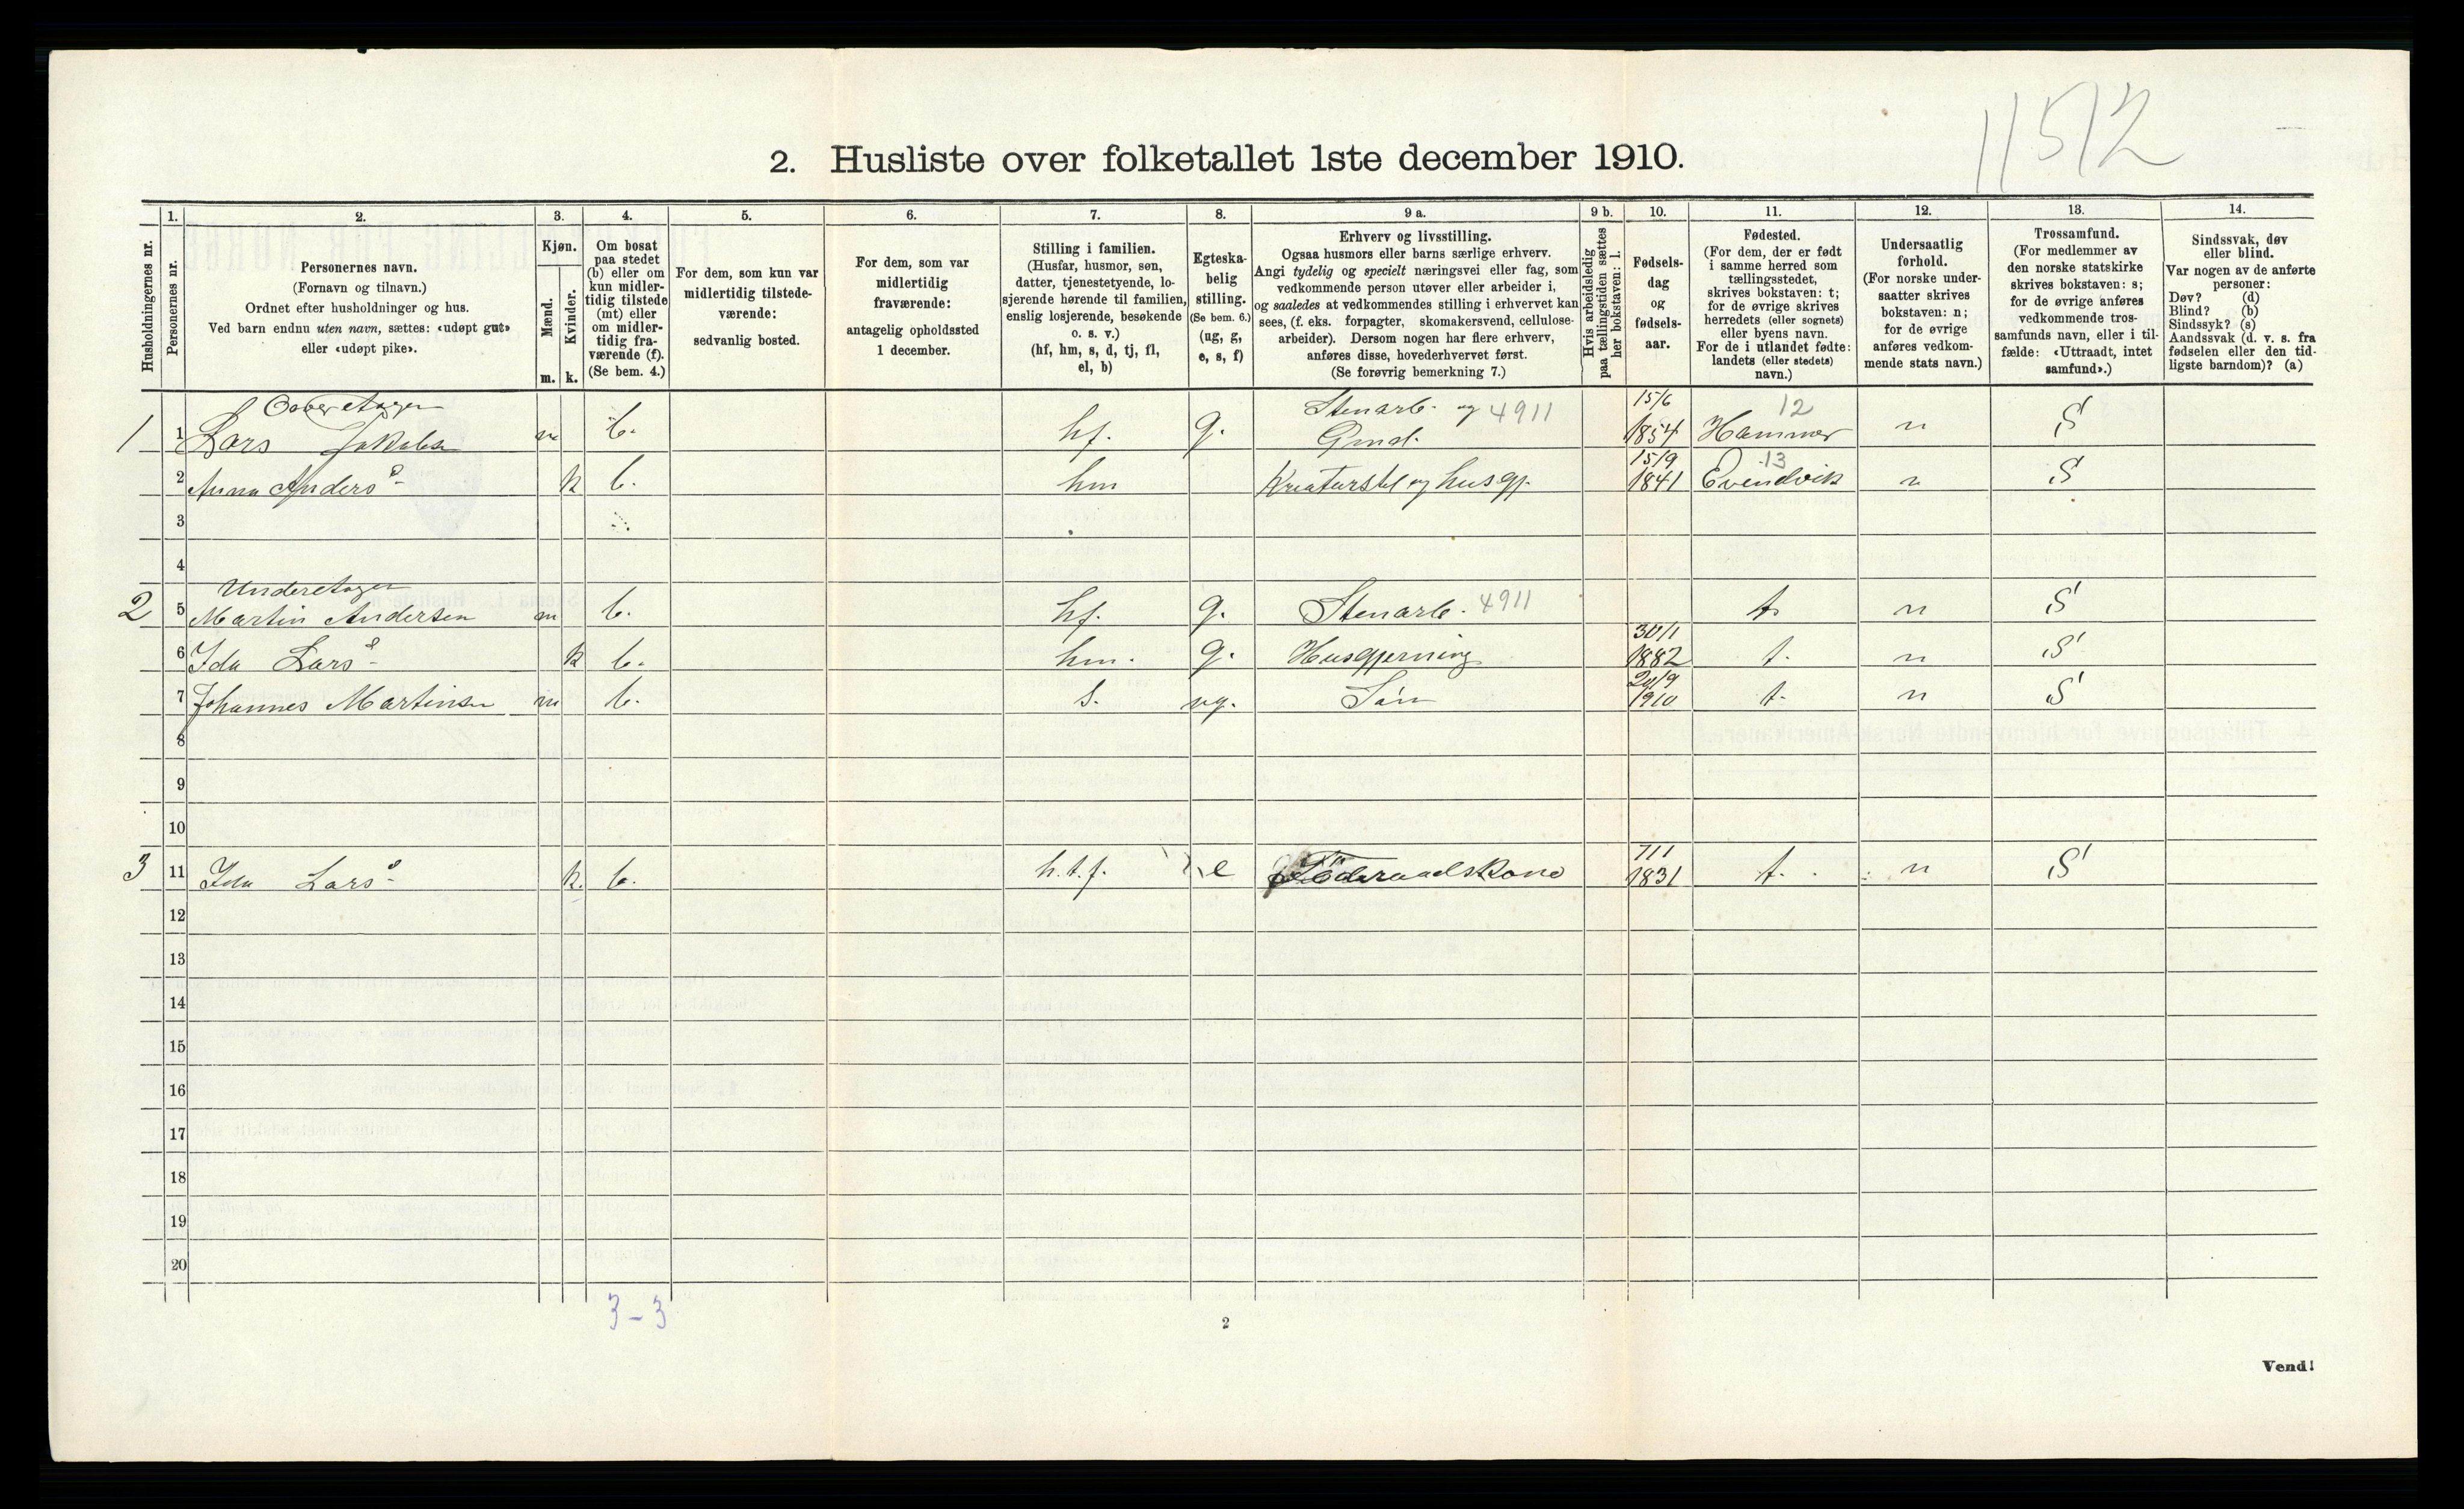 11512
2. Husliste over folketallet 1ste december 1910.
Husholdningernes nr.
1.
Personernes nr.
2.
Personernes navn.
(Fornavn og tilnavn.)
Ordnet efter husholdninger og hus.
Ved barn endnu uten navn, sættes: «udøpt gut»
eller «udøpt pike».
3.
Kjøn.
Mænd.
Kvinder.
m. k.
4.
Om bosat
paa stedet
(b) eller om
kun midler-
tidig tilstede
(mt) eller
om midler-
tidig fra-
værende (f).
(Se bem. 4.)
5.
For dem, som kun var
midlertidig tilstede-
værende:
sedvanlig bosted.
6.
For dem, som var
midlertidig
fraværende:
antagelig opholdssted
1 december.
7.
Stilling i familien.
(Husfar, husmor, søn,
datter, tjenestetyende, lo-
sjerende hørende til familien,
enslig losjerende, besøkende
o. s. v.)
(hf, hm, s, d, tj, fl,
el, b)
8.
Egteska-
belig
stilling.
(Se bem. 6.)
(ug, g,
e, s, f)
9 a.
Erhverv og livsstilling.
Ogsaa husmors eller barns særlige erhverv.
Angi tydelig og specielt næringsvei eller fag, som
vedkommende person utøver eller arbeider i,
og saaledes at vedkommendes stilling i erhvervet kan
sees, (f. eks. forpagter, skomakersvend, cellulose-
arbeider). Dersom nogen har flere erhverv,
anføres disse, hovederhvervet først.
(Se forøvrig bemerkning 7.)
9 b.
Hvis arbeidsledig
paa tællingstiden sættes
her bokstaven: l.
10.
Fødsels-
dag
og
fødsels-
aar.
11.
Fødested.
(For dem, der er født
i samme herred som
tællingsstedet,
skrives bokstaven: t;
for de øvrige skrives
herredets (eller sognets)
eller byens navn.
For de i utlandet fødte:
landets (eller stedets)
navn.)
12.
Undersaatlig
forhold.
(For norske under-
saatter skrives
bokstaven: n;
for de øvrige
anføres vedkom-
mende stats navn.)
13.
Trossamfund.
(For medlemmer av
den norske statskirke
skrives bokstaven: s;
for de øvrige anføres
vedkommende tros-
samfunds navn, eller i til-
fælde: «Uttraadt, intet
samfund».)
14.
Sindssvak, døv
eller blind.
Var nogen av de anførte
personer:
Døv? (d)
Blind? (b)
Sindssyk? (s)
Aandssvak (d. v. s. fra
fødselen eller den tid-
ligste barndom)? (a)
Stenarb. og 4911 15/6 12
1 1 Lars Jakobsen m b. hf. g. Gmd. 1854 Hammer n S
15/9 13
2 Anna Anders k b. hm Kreaturstel og husgj. 1841 Evendvik n S
3
4
Underetagen
2 5 Martin Andersen m b. hf. g. Stenarb. 4911 t. n S
30/1
6 Ida Lars k b. hm. g. Husgjerning 1882 t. n S
7 Johannes Martinsen m b. s. ug. Søn 1910 t. n S
8
9
10
3 11 Ida Lars k. b. h.t.f. e Føderaadskone 1831 t. n S
12
13
14
15
16
17
18
19
20
3-3
2
Vend!